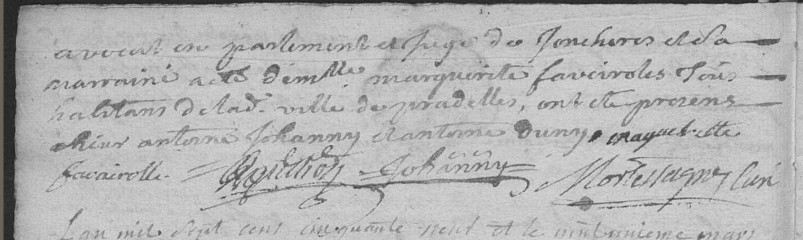 avocat en parlement et juge de Joncheres et La
marraine a eté demlle marguerite faveirolles Tous
habitans de lad. ville de pradelles, ont eté presens
sieur antoine Johanny et antoine Duny
favairolle Johanny Curé
L'an mil sept cent cinquante neuf et le vint unieme mars